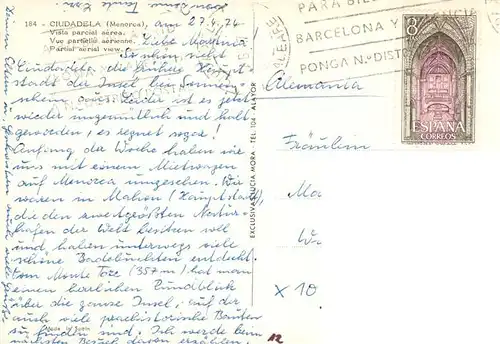 184 - CIUDADELA (Menorca)
Vista parcial aérea.
Vue partielle aérienne.
Partial aerial view.
am 27.4.74
Liebe
So schön sieht
Ciudadela, die frühere Haupt-
stadt der Insel bei Sonnen-
schein aus. Leider ist es jetzt
wieder ungemütlich und kalt
geworden, es regnet sogar!
Anfang der Woche haben wir
uns mit einem Mietwagen
auf Menorca umgesehen. Wir
waren in Mahon (Hauptstadt),
die den zweitgrößten Natur-
hafen der Welt besitzen soll
und haben unterwegs viele
schöne Badebuchten entdeckt.
Vom Monte Toro (357 m) hat man
einen herrlichen Rundblick
über die ganze Insel, auf der
auch viele praehistorische Bauten
zu finden sind. Ich werde beim
nächsten Besuch davon erzählen.
Made in Spain
EXCLUSIVAS LUCIA MORA - TEL. 104 - ALAYOR
PARA
BARCELONA Y
PONGA N.º DISTR
8
ESPAÑA
CORREOS
Alemania
Fräulein
Ma
W
x 10
12